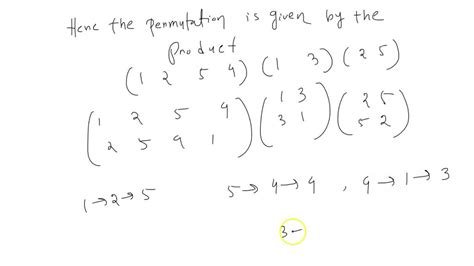 Hene the permutation is given by the
product
(1 2 5 4) (1 3) (2 5)
(1 2 5 4) (1 3) (2 5)
(2 5 4 1) (3 1) (5 2)
1→2→5 5→4→4 , 4→1→3
3←